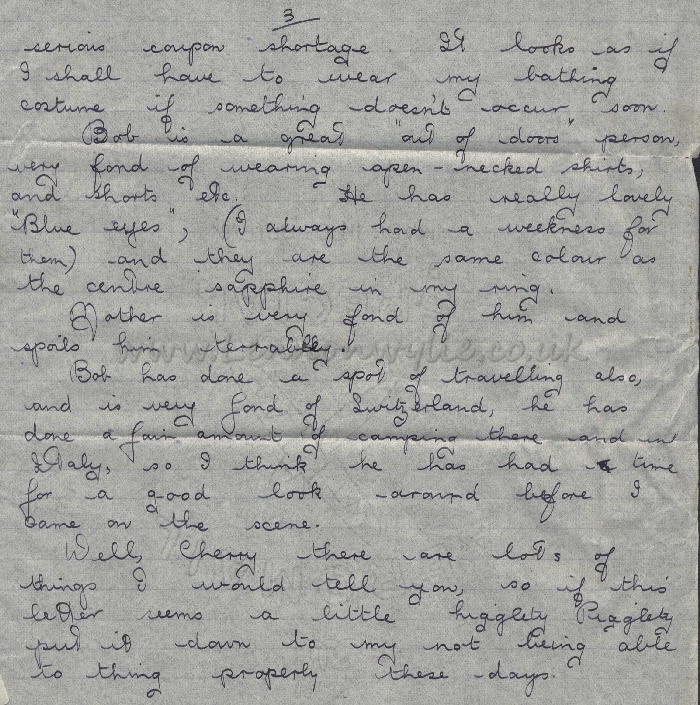 3
serious coupon shortage. It looks as if
I shall have to wear my bathing
costume if something doesn't occur soon.
Bob is a great "out of doors" person,
very fond of wearing open-necked shirts,
and shorts etc. He has really lovely
"Blue eyes", (I always had a weekness for
them) and they are the same colour as
the centre sapphire in my ring.
Mother is very fond of him and
spoils him terrabley
www.wyllie.co.uk
Bob has done a spot of travelling also,
and is very fond of Switzerland, he has
done a fair amount of camping there and in
Italy, so I think he has had time
for a good look around before I
came on the scene.
Well, Cherry there are lots of
things I would tell you, so if this
letter seems a little higglety Pigglety
put it down to my not being able
to thing properly these days.